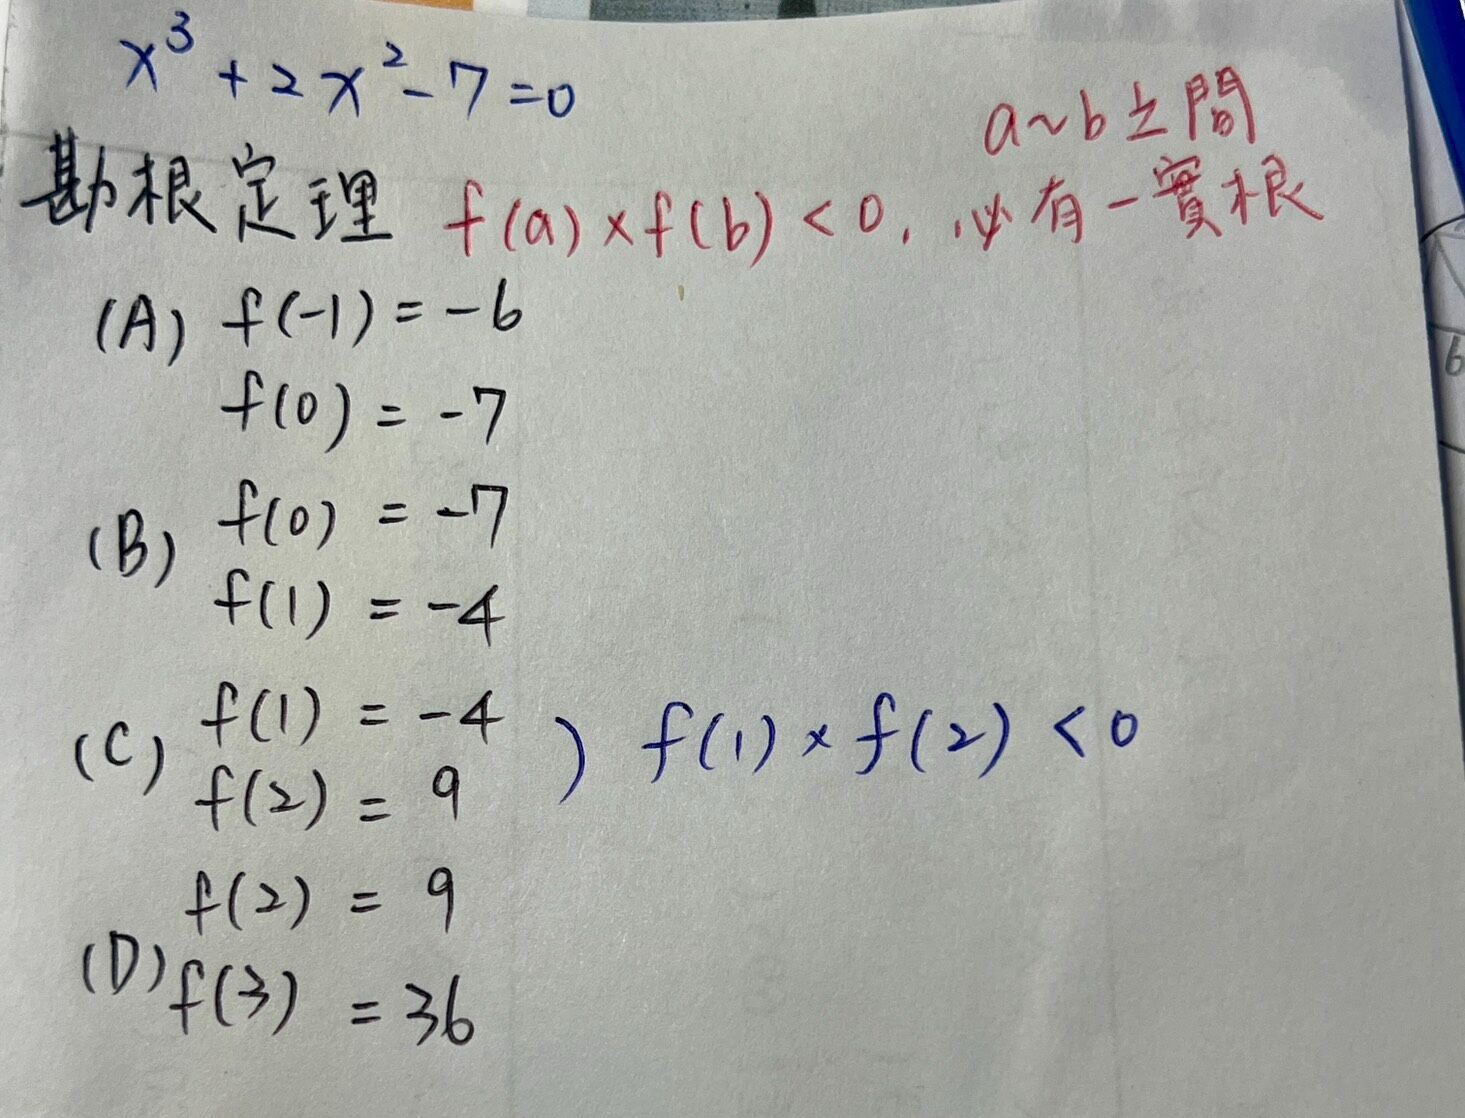 x³+2x²-7=0
a~b之間
勘根定理 f(a)×f(b)<0, 必有一實根
(A) f(-1)=-6
f(0)=-7
(B) f(0)=-7
f(1)=-4
(C) f(1)=-4
f(2)=9
) f(1)×f(2)<0
f(2)=9
(D) f(3)=36
6